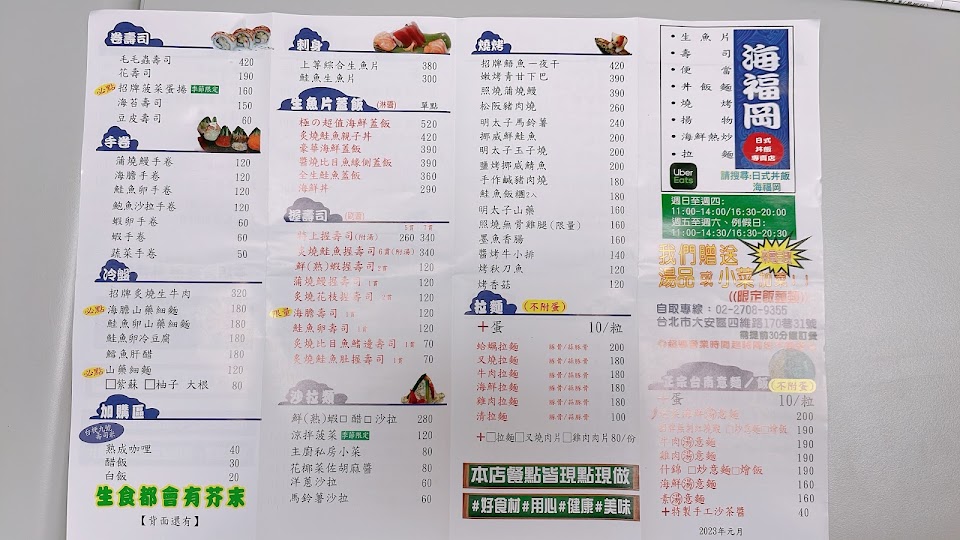 卷壽司
毛毛蟲壽司 420
花壽司 190
必點 招牌菠菜蛋捲 季節限定 160
海苔壽司 150
豆皮壽司 60
手卷
蒲燒鰻手卷 120
海膽手卷 120
鮭魚卵手卷 120
鮑魚沙拉手卷 120
蝦卵手卷 60
蝦手卷 60
蔬菜手卷 50
冷盤
招牌炙燒生牛肉 320
必點 海膽山藥細麵 180
鮭魚卵山藥細麵 180
鮭魚卵冷豆腐 180
鱈魚肝醋 180
必點 山藥細麵 120
□紫蘇 □柚子 大根 80
加購區
台梗九號壽司米
熟成咖哩 40
醋飯 30
白飯 20
生食都會有芥末
【背面還有】
刺身
上等綜合生魚片 380
鮭魚生魚片 300
生魚片蓋飯 單點
極の超值海鮮蓋飯 520
炙燒鮭魚親子丼 420
豪華海鮮蓋飯 390
醬燒比目魚緣側蓋飯 390
全生鮭魚蓋飯 360
海鮮丼 290
握壽司
5貫 7貫
特上握壽司(附湯) 260 340
炙燒鮭魚握壽司6貫(附湯) 340
鮮(熟)蝦握壽司2貫 120
蒲燒鰻握壽司2貫 120
炙燒花枝握壽司 120
限量 海膽壽司 120
鮭魚卵壽司 120
炙燒比目魚鰭邊壽司 1貫 70
炙燒鮭魚肚握壽司 1貫 70
沙拉類
鮮(熟)蝦□醋□沙拉 280
涼拌菠菜 季節限定 120
主廚私房小菜 80
花椰菜佐胡麻醬 80
洋蔥沙拉 60
馬鈴薯沙拉 60
燒烤
招牌鯖魚一夜干 420
嫩烤青甘下巴 390
照燒蒲燒鰻 390
松阪豬肉燒 260
明太子馬鈴薯 240
挪威鮭鮭魚 200
明太子玉子燒 200
鹽烤挪威鯖魚 200
手作鹹豬肉燒 180
鮭魚飯糰2入 180
明太子山藥 180
照燒無骨雞腿(限量) 180
墨魚香腸 160
醬烤牛小排 140
烤秋刀魚 120
烤香菇 120
拉麵 (不附蛋)
＋蛋 10/粒
蛤蠣拉麵 豚骨/蒜豚骨 200
叉燒拉麵 豚骨/蒜豚骨 180
牛肉拉麵 豚骨/蒜豚骨 180
海鮮拉麵 豚骨/蒜豚骨 180
雞肉拉麵 豚骨/蒜豚骨 180
清拉麵 豚骨/蒜豚骨 100
＋□拉麵□叉燒肉片□雞肉肉片 80/份
本店餐點皆現點現做
#好食材#用心#健康#美味
•生魚片
•壽司
•便當
•丼飯麵
•燒烤
•揚物
•海鮮熱炒
•拉麵
海福岡
日式丼飯專賣店
Uber Eats
請搜尋:日式丼飯
海福岡
週日至週四：
11:00-14:00/16:30-20:00
週五至週六、例假日：
11:00-14:30/16:30-20:30
我們贈送
湯品 或 小菜
自取專線：02-2708-9355
台北市大安區四維路170巷31號
正宗台南意麵／飯 (不附蛋)
＋蛋 10/粒
200
190
牛肉湯意麵 190
雞肉湯意麵 190
什錦 □炒意麵□燴飯 190
海鮮湯意麵 160
素湯意麵 160
＋特製手工沙茶醬 40
2023年元月